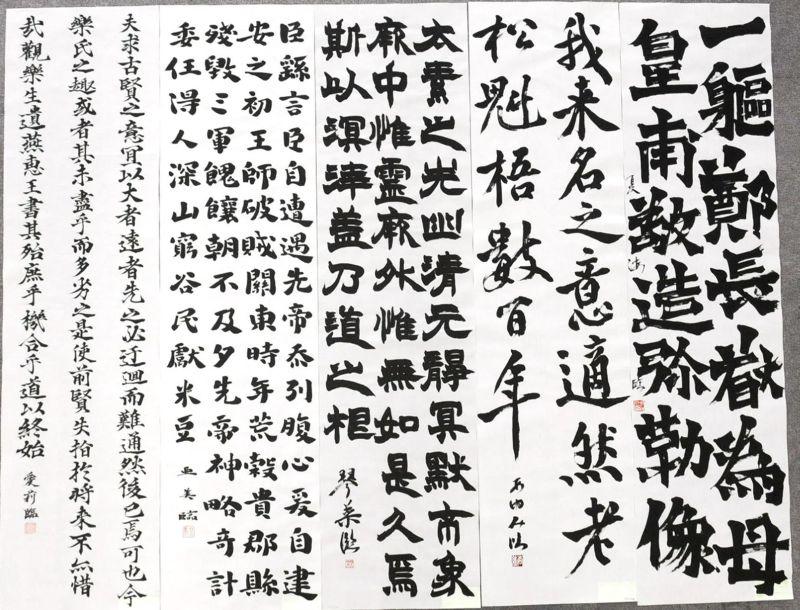 一軀鄭長猷為母
皇甫敬造弥勒像
夏海臨
我来名之意適然老
松魁梧數百年
あゆみ臨
太素之先幽清元靜冥默象
厥中惟靈厥外惟無如是久焉
斯以溟涬蓋乃道之根
臨
臣繇言臣自遭遇先帝忝列腹心爰自建
安之初王師破賊關東時年荒穀貴郡縣
殘毀三軍餽饟朝不及夕先帝神略奇計
委任得人深山窮谷民獻米豆
亜美臨
夫求古賢之意宜以大者遠者先之必迂迴而難通然後已焉可也今
樂氏之趣或者其未盡乎而多劣之是使前賢失指於將來不亦惜
哉觀樂生遺燕惠王書其殆庶乎機合乎道以終始
愛莉臨